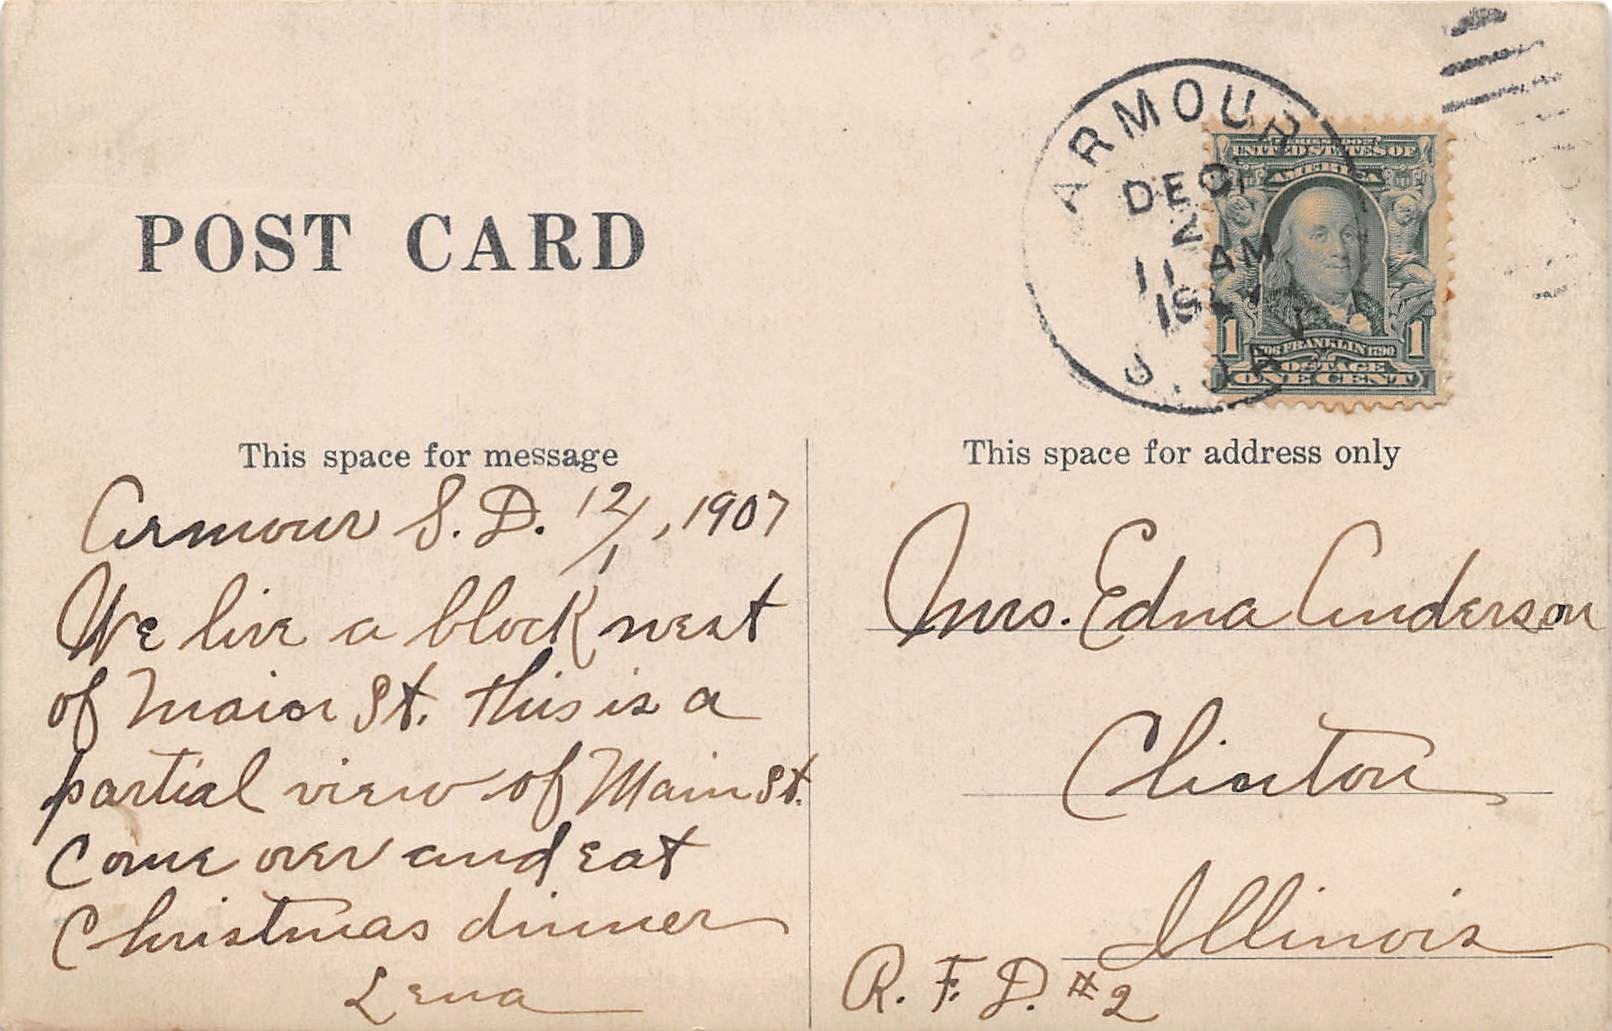 POST CARD
ARMOUR
DEC
2
11 AM
UNITED STATES OF
AMERICA
1 1
FRANKLIN 1790
POSTAGE
ONE CENT
This space for message
Armour S.D. 12/1, 1907
We live a block west
of Main St. this is a
partial view of Main St.
Come over and eat
Christmas dinner
Lena
This space for address only
Mrs. Edna Anderson
Clinton
Illinois
R. F. D. #2